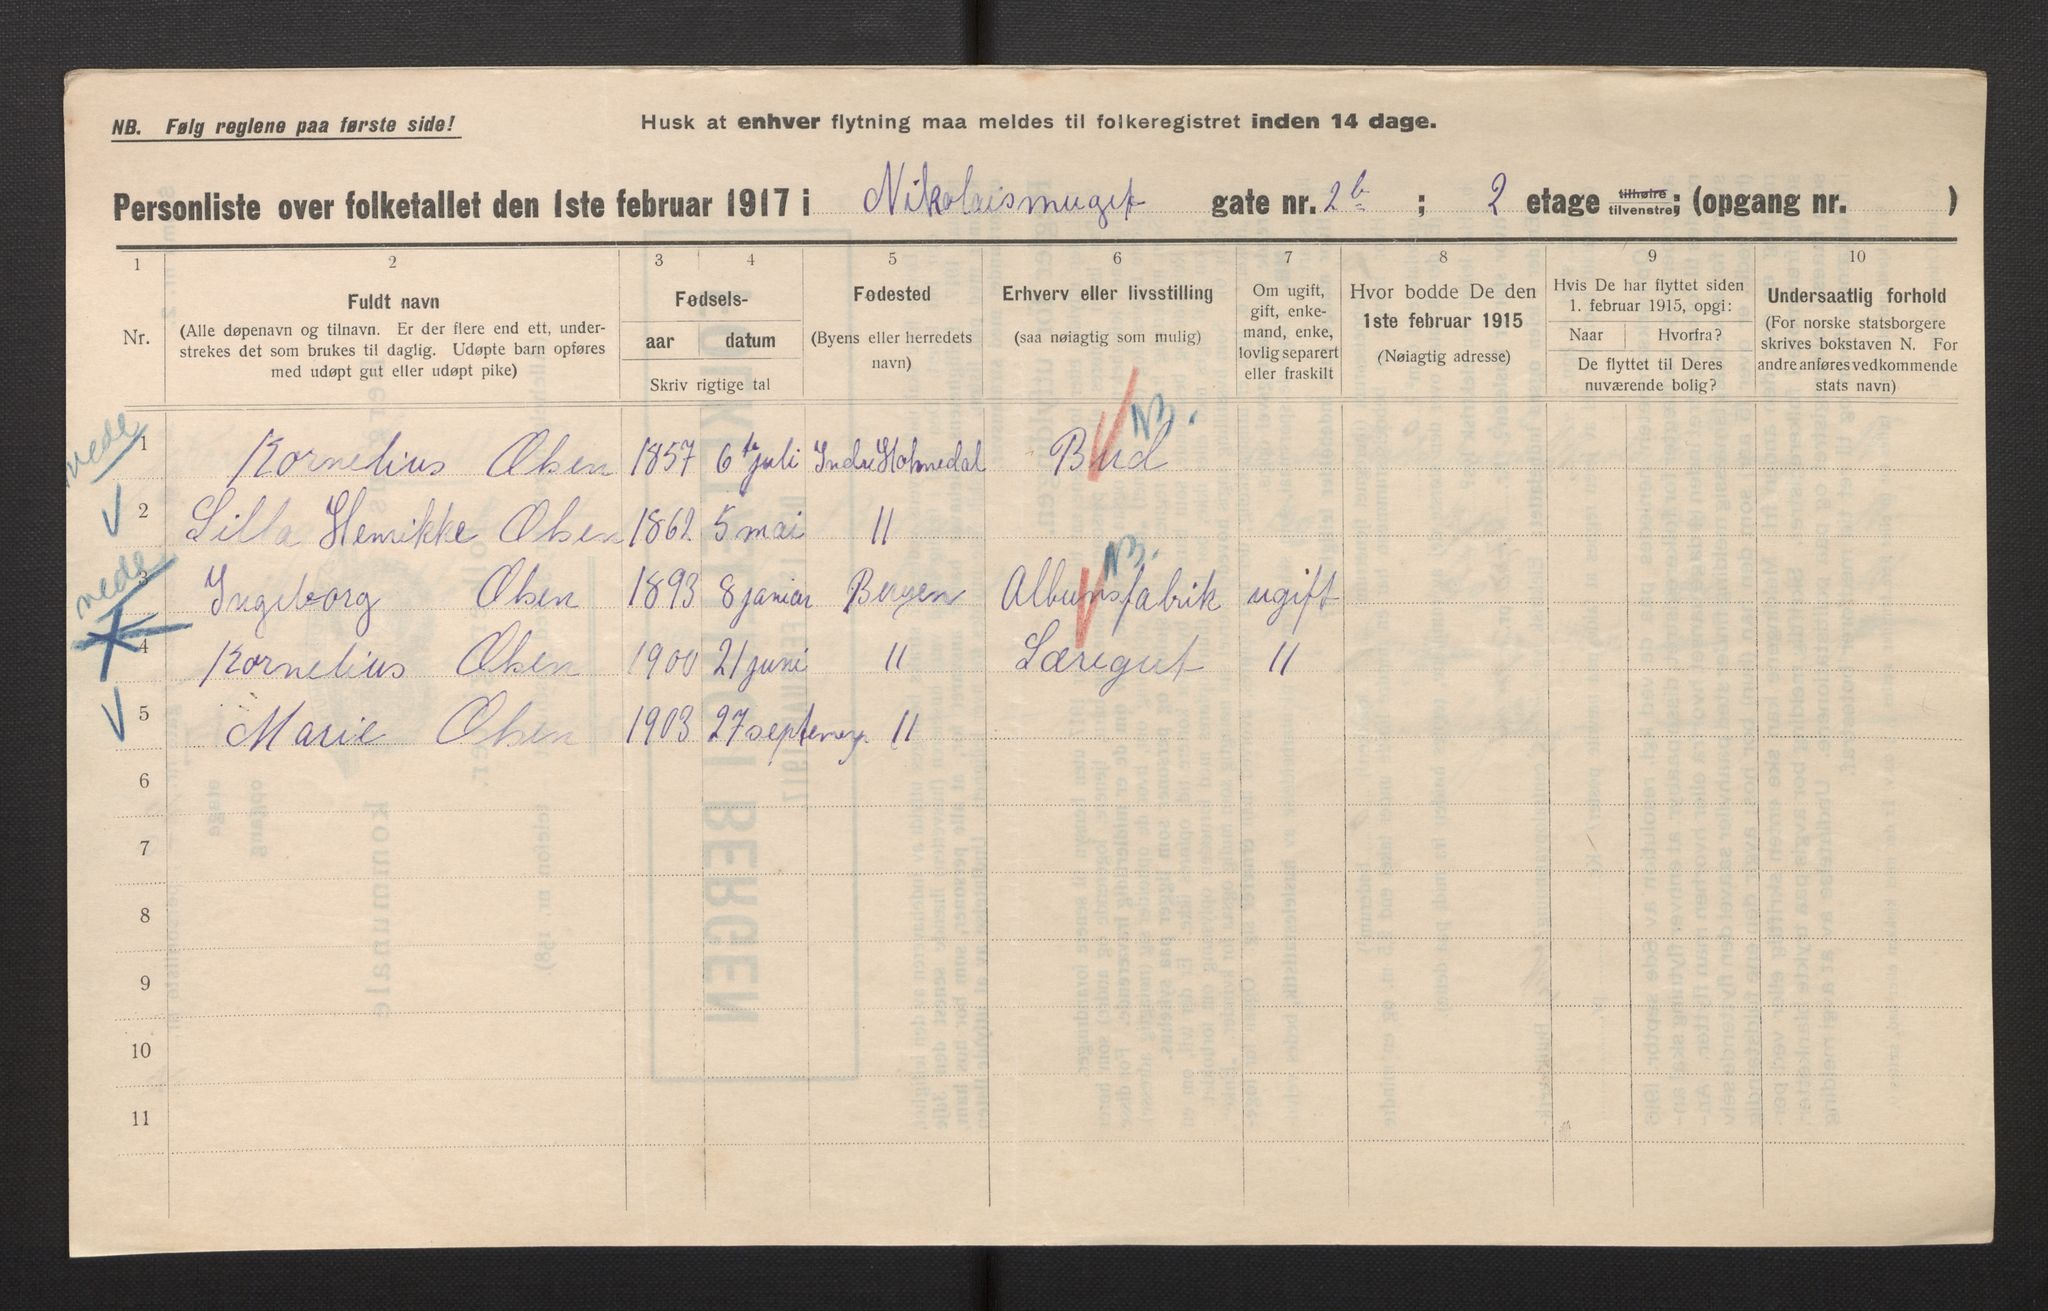 NB. Følg reglene paa første side!
Husk at enhver flytning maa meldes til folkeregistret inden 14 dage.
Personliste over folketallet den 1ste februar 1917 i Nikolaismuget gate nr. 2b ; 2 etage tilhøire tilvenstre; (opgang nr. )
1 2 3 4 5 6 7 8 9 10
Nr.
Fuldt navn
(Alle døpenavn og tilnavn. Er der flere end ett, under-
strekes det som brukes til daglig. Udøpte barn opføres
med udøpt gut eller udøpt pike)
Fødsels-
aar datum
Skriv rigtige tal
Fødested
(Byens eller herredets
navn)
Erhverv eller livsstilling
(saa nøiagtig som mulig)
Om ugift,
gift, enke-
mand, enke,
lovlig separert
eller fraskilt
Hvor bodde De den
1ste februar 1915
(Nøiagtig adresse)
Hvis De har flyttet siden
1. februar 1915, opgi:
Naar Hvorfra?
De flyttet til Deres
nuværende bolig?
Undersaatlig forhold
(For norske statsborgere
skrives bokstaven N. For
andre anføres vedkommende
stats navn)
nede
1 Kornelius Olsen 1857 6te juli Indre Holmedal Bud NB.
2 Lilla Henrikke Olsen 1862 5 mai "
nede
3 Ingeborg Olsen 1893 8 januar Bergen Albumsfabrik NB. ugift
4 Kornelius Olsen 1900 21 juni " Læregut "
5 Marie Olsen 1903 27 september "
6
7
8
9
10
11